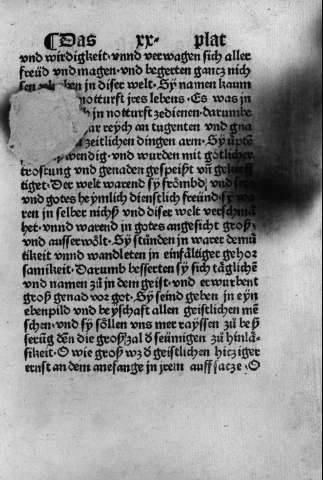 ¶Das xx· plat
vnd wirdigkeit· vnnd verwagen sich aller
freüd vnd magen· vnd begerten gancz nich
in diser welt· Sÿ namen kaum
notturft jres lebens· Es was in
in notturft zedienen· darumbe
reych an tugenten vnd gna
zeitlichen dingen arm· Sÿ
wendig· vnd wurden mit götlicher
tröstung vnd genaden gespeißt vñ
tiget· Der welt warend sÿ frömbd· vnd
vnd gotes heÿmlich dienstlich freünd· sÿ wa
ren in selber nichß vnd diser welt verschmä
het· vnnd warend in gotes angesicht groß·
vnd ausserwölt· Sÿ stůnden in warer demů
tikeit vnnd wandleten in einfältiger gehor
samikeit· Darumb besserten sÿ sich täglichẽ
vnd namen zů in dem geist· vnd erwurbent
groß genad vor got· Sÿ seind geben in eyn
ebenpild vnd beÿschaft allen geistlichen mẽ
schen· vnd sÿ söllen vns mer rayssen zů beß
serũg dẽn die großzal d seümigen zů hinlä-
sikeit· O wie groß wz d geistlichen hicziger
ernst an dem anefange in jrem auffsacze· O